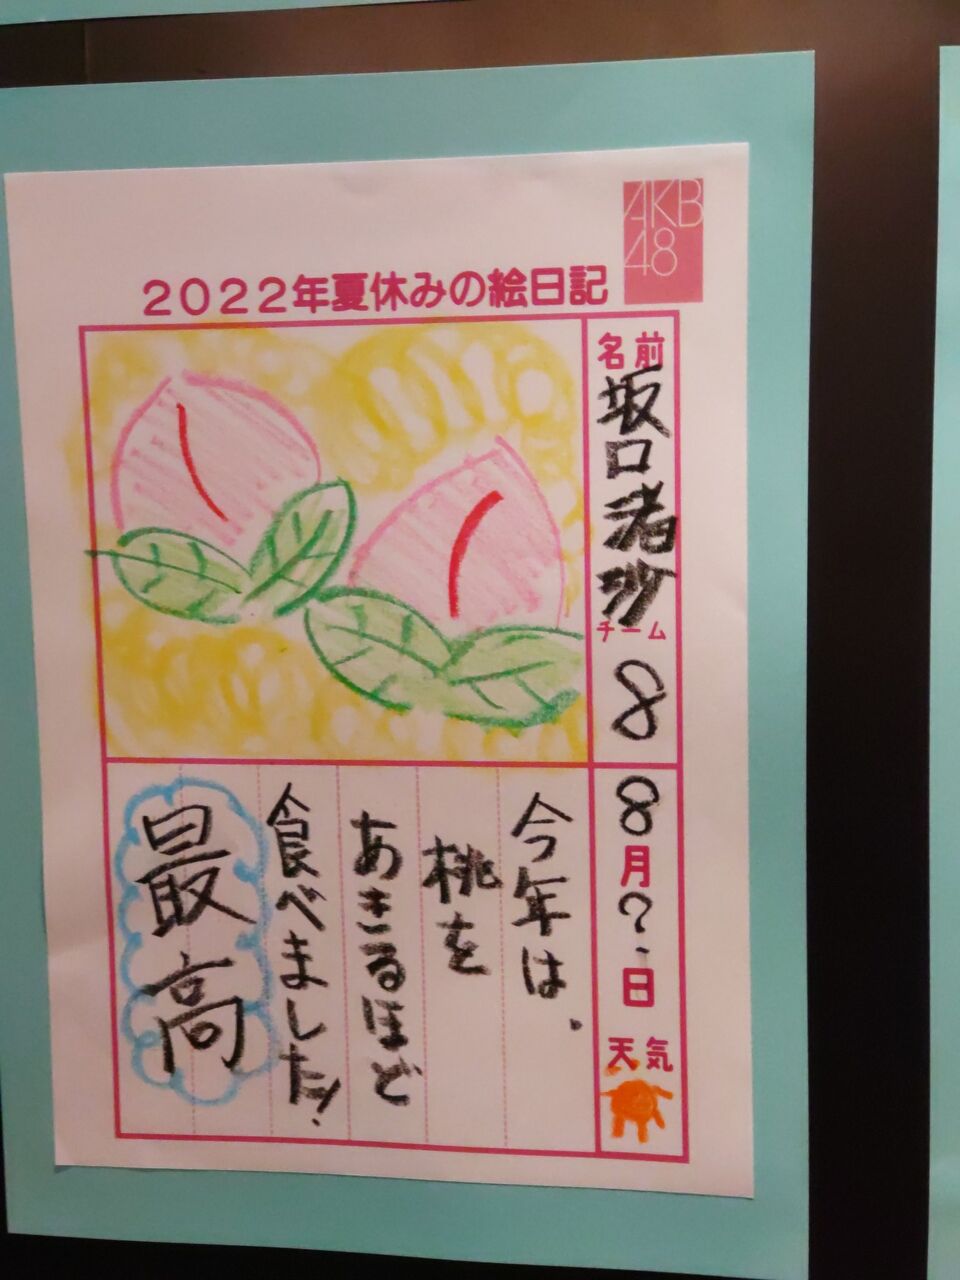 AKB
48
2022年夏休みの絵日記
名前
坂口渚沙
チーム
8
8月?日
天気
今年は、
桃を
あきるほど
食べました!
最高